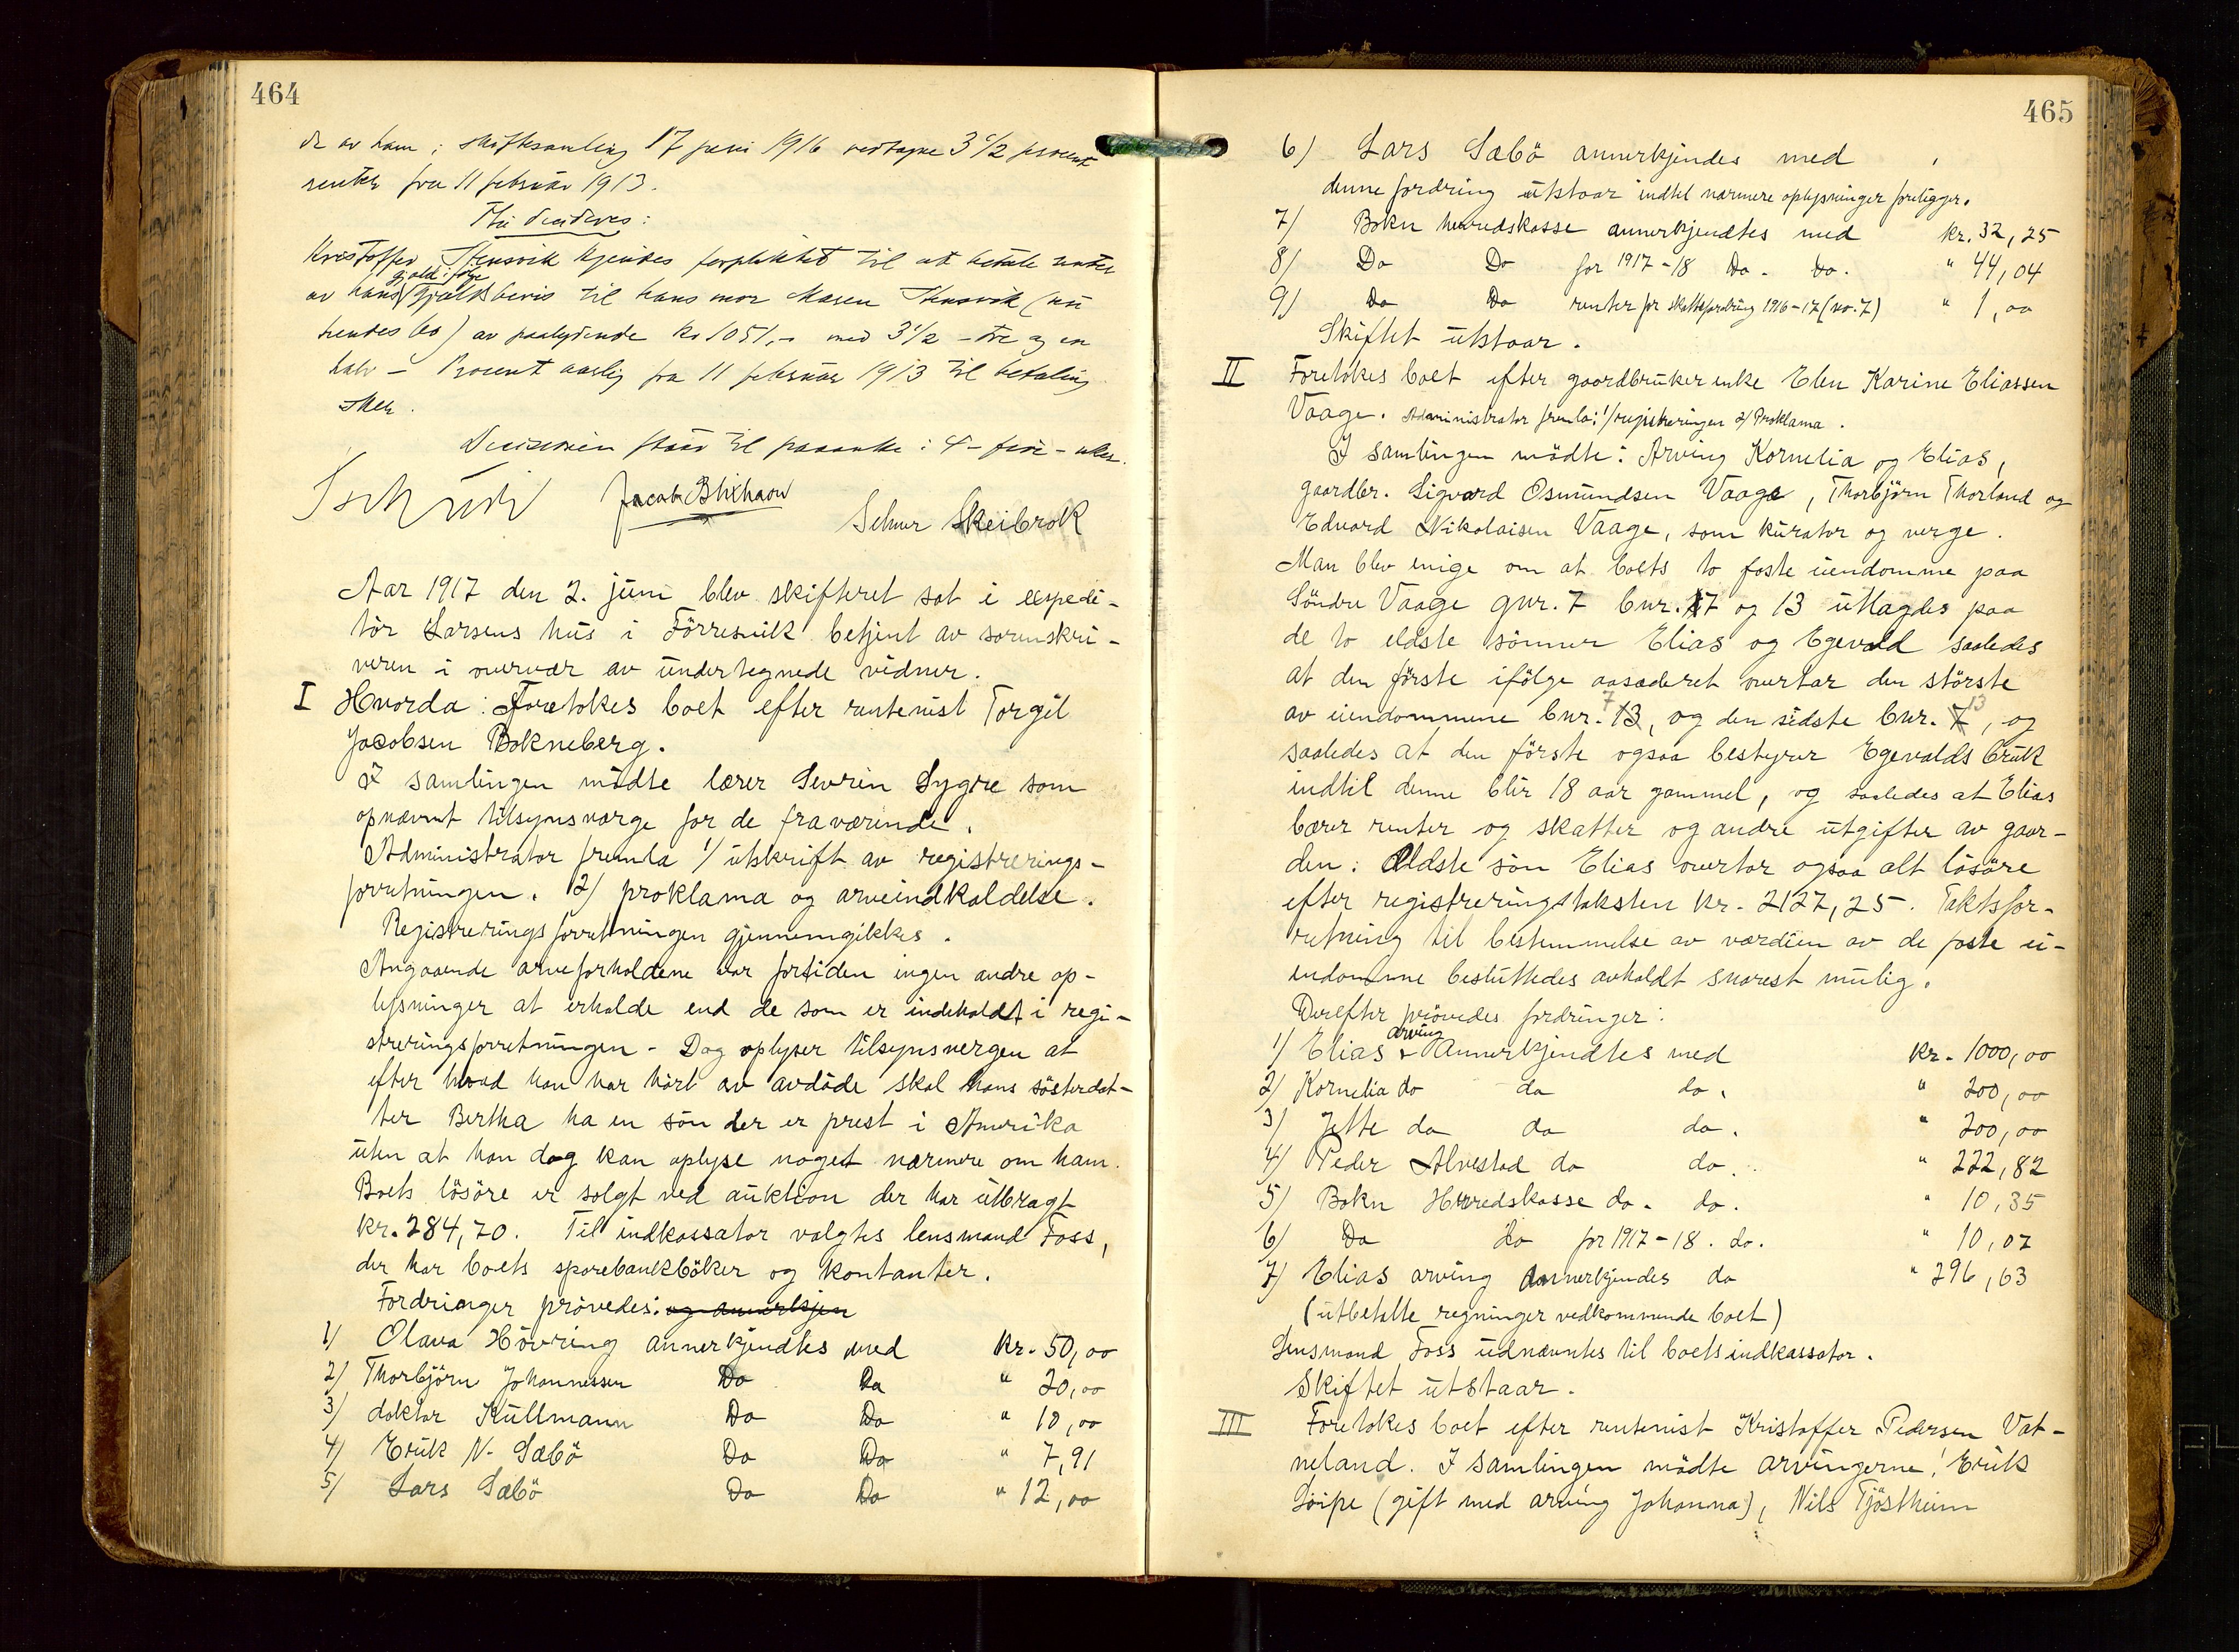 464
de av ham i skiftesamling 17 juni 1916 vedtagne 3 1/2 procent
renter fra 11 februar 1913.
Thi decideres:
Kristoffer Stensvik kjendes forpliktet til at betale renter
gjæld ifølge
av hans gjælds bevis til hans mor Maren Stensvik (nu
hendes bo) av paalydende kr 1051,- med 3 1/2 - tre og en
halv - Procent aarlig fra 11 februar 1913 til betaling
sker.
Decisionen staar til paaanke i 4 - fire - uker.
Jacob Skeibrok
Aar 1917 den 2. juni blev skifteret sat i expedi-
tör Larsens hus i Förresvik betjent av sorenskri-
veren i overvær av undertegnede vidner.
I Hvorda: Foretokes boet efter rentenist Torgil
Jacobsen Bokneberg.
I samlingen mödte lærer Sevrin Lygre som
opnævnt tilsynsværge for de fraværende.
Administrator fremla 1/ utskrift av registrerings-
forretningen. 2/ proklama og arveindkaldelse.
Registreringsforretningen gjennemgikkes.
Angaaende arveforholdene var fortiden ingen andre op-
lysninger at erholde end de som er indeholdt i regi-
streringsforretningen - Dog oplyser tilsynsvergen at
efter hvad han har hört av avdöde skal hans sösterdat-
ter Bertha ha en sön der er prest i Amerika
uten at han dog kan oplyse noget nærmere om ham.
Boets lösöre er solgt ved auktion der har utbragt
kr. 284,70. Til indkassator valgtes lensmand Foss,
der har boets sparebankböker og kontanter.
Fordringer prövedes: og anerkjen
1/ Olava Hövring annerkjendtes med kr. 50,00
2/ Thorbjörn Johannessen Do Do " 20,00
3/ doktor Kullmann Do Do " 10,00
4/ Erik N. Sæbö Do Do " 7,91
5/ Lars Sæbö Do Do " 12,00
465
6/ Lars Sæbö annerkjendes med
denne fordring utstaar indtil nærmere oplysninger foreligger.
7/ Bokn herredskasse annerkjendtes med kr. 32,25
8/ Do Do for 1917-18 Do. Do. " 44,04
9/ Do Do renter for skattefordring 1916-17 (no. 7) " 1,00
Skiftet utstaar.
II Foretokes boet efter gaardbruker enke Elen Karine Eliassen
Vaage. Administrator fremla: 1/ registreringen 2/ Proklama.
I samlingen mödte: Arving Kornelia og Elias,
gaardbr. Sigvard Osmundsen Vaage, Thorbjörn Thorland og
Edvard Nikolaisen Vaage, som kurator og verge.
Man blev enige om at boets to faste eiendomme paa
Söndre Vaage gnr. 7 bnr. 7 og 13 utlagdes paa
de to eldste sönner Elias og Egevald saaledes
at den förste ifölge aasæderet overtar den störste
av eiendommene bnr. 13 7, og den sidste bnr. 7 13, og
saaledes at den förste ogsaa bestyrer Egevalds bruk
indtil denne blir 18 aar gammel, og saaledes at Elias
bærer renter og skatter og andre utgifter av gaar-
den: Eldste sön Elias overtar ogsaa alt lösöre
efter registreringstaksten kr. 2127,25. Takstsfor-
retning til bestemmelse av værdien av de faste ei-
endomme besluttedes avholdt snarest mulig.
Derefter prövedes fordringer:
1/ Elias arving Annerkjendtes med kr. 1000,00
2/ Kornelia do do do. " 200,00
3/ Jette do do do. " 200,00
4/ Peder Alvestad do do. " 222,82
5/ Bokn Herredskasse do. do. " 10,35
6/ Do do for 1917-18. do. " 10,07
7/ Elias arving annerkjendes do " 296,63
(utbetalte regninger vedkommende boet)
Lensmand Foss udnævntes til boets indkassator.
Skiftet utstaar.
III Foretokes boet efter rentenist Kristoffer Pedersen Vat-
neland. I samlingen mödte arvingerne: Erik
(gift med arving Johanna), Nils Tjöstheim